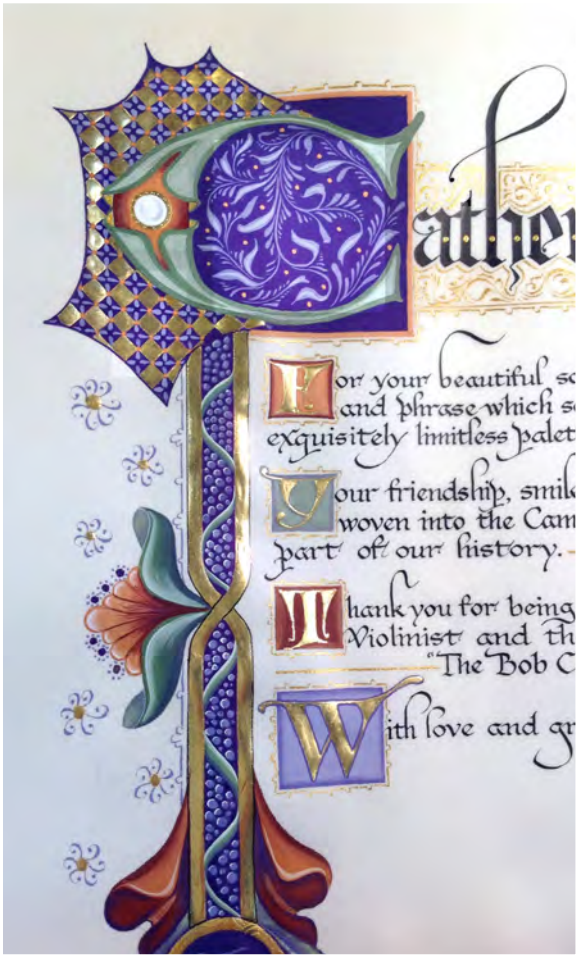 Cather
For your beautiful so
and phrase which s
exquisitely limitless palet
Your friendship, smile
woven into the Cam
part of our history.
Thank you for being
Violinist and th
"The Bob C
With love and gr